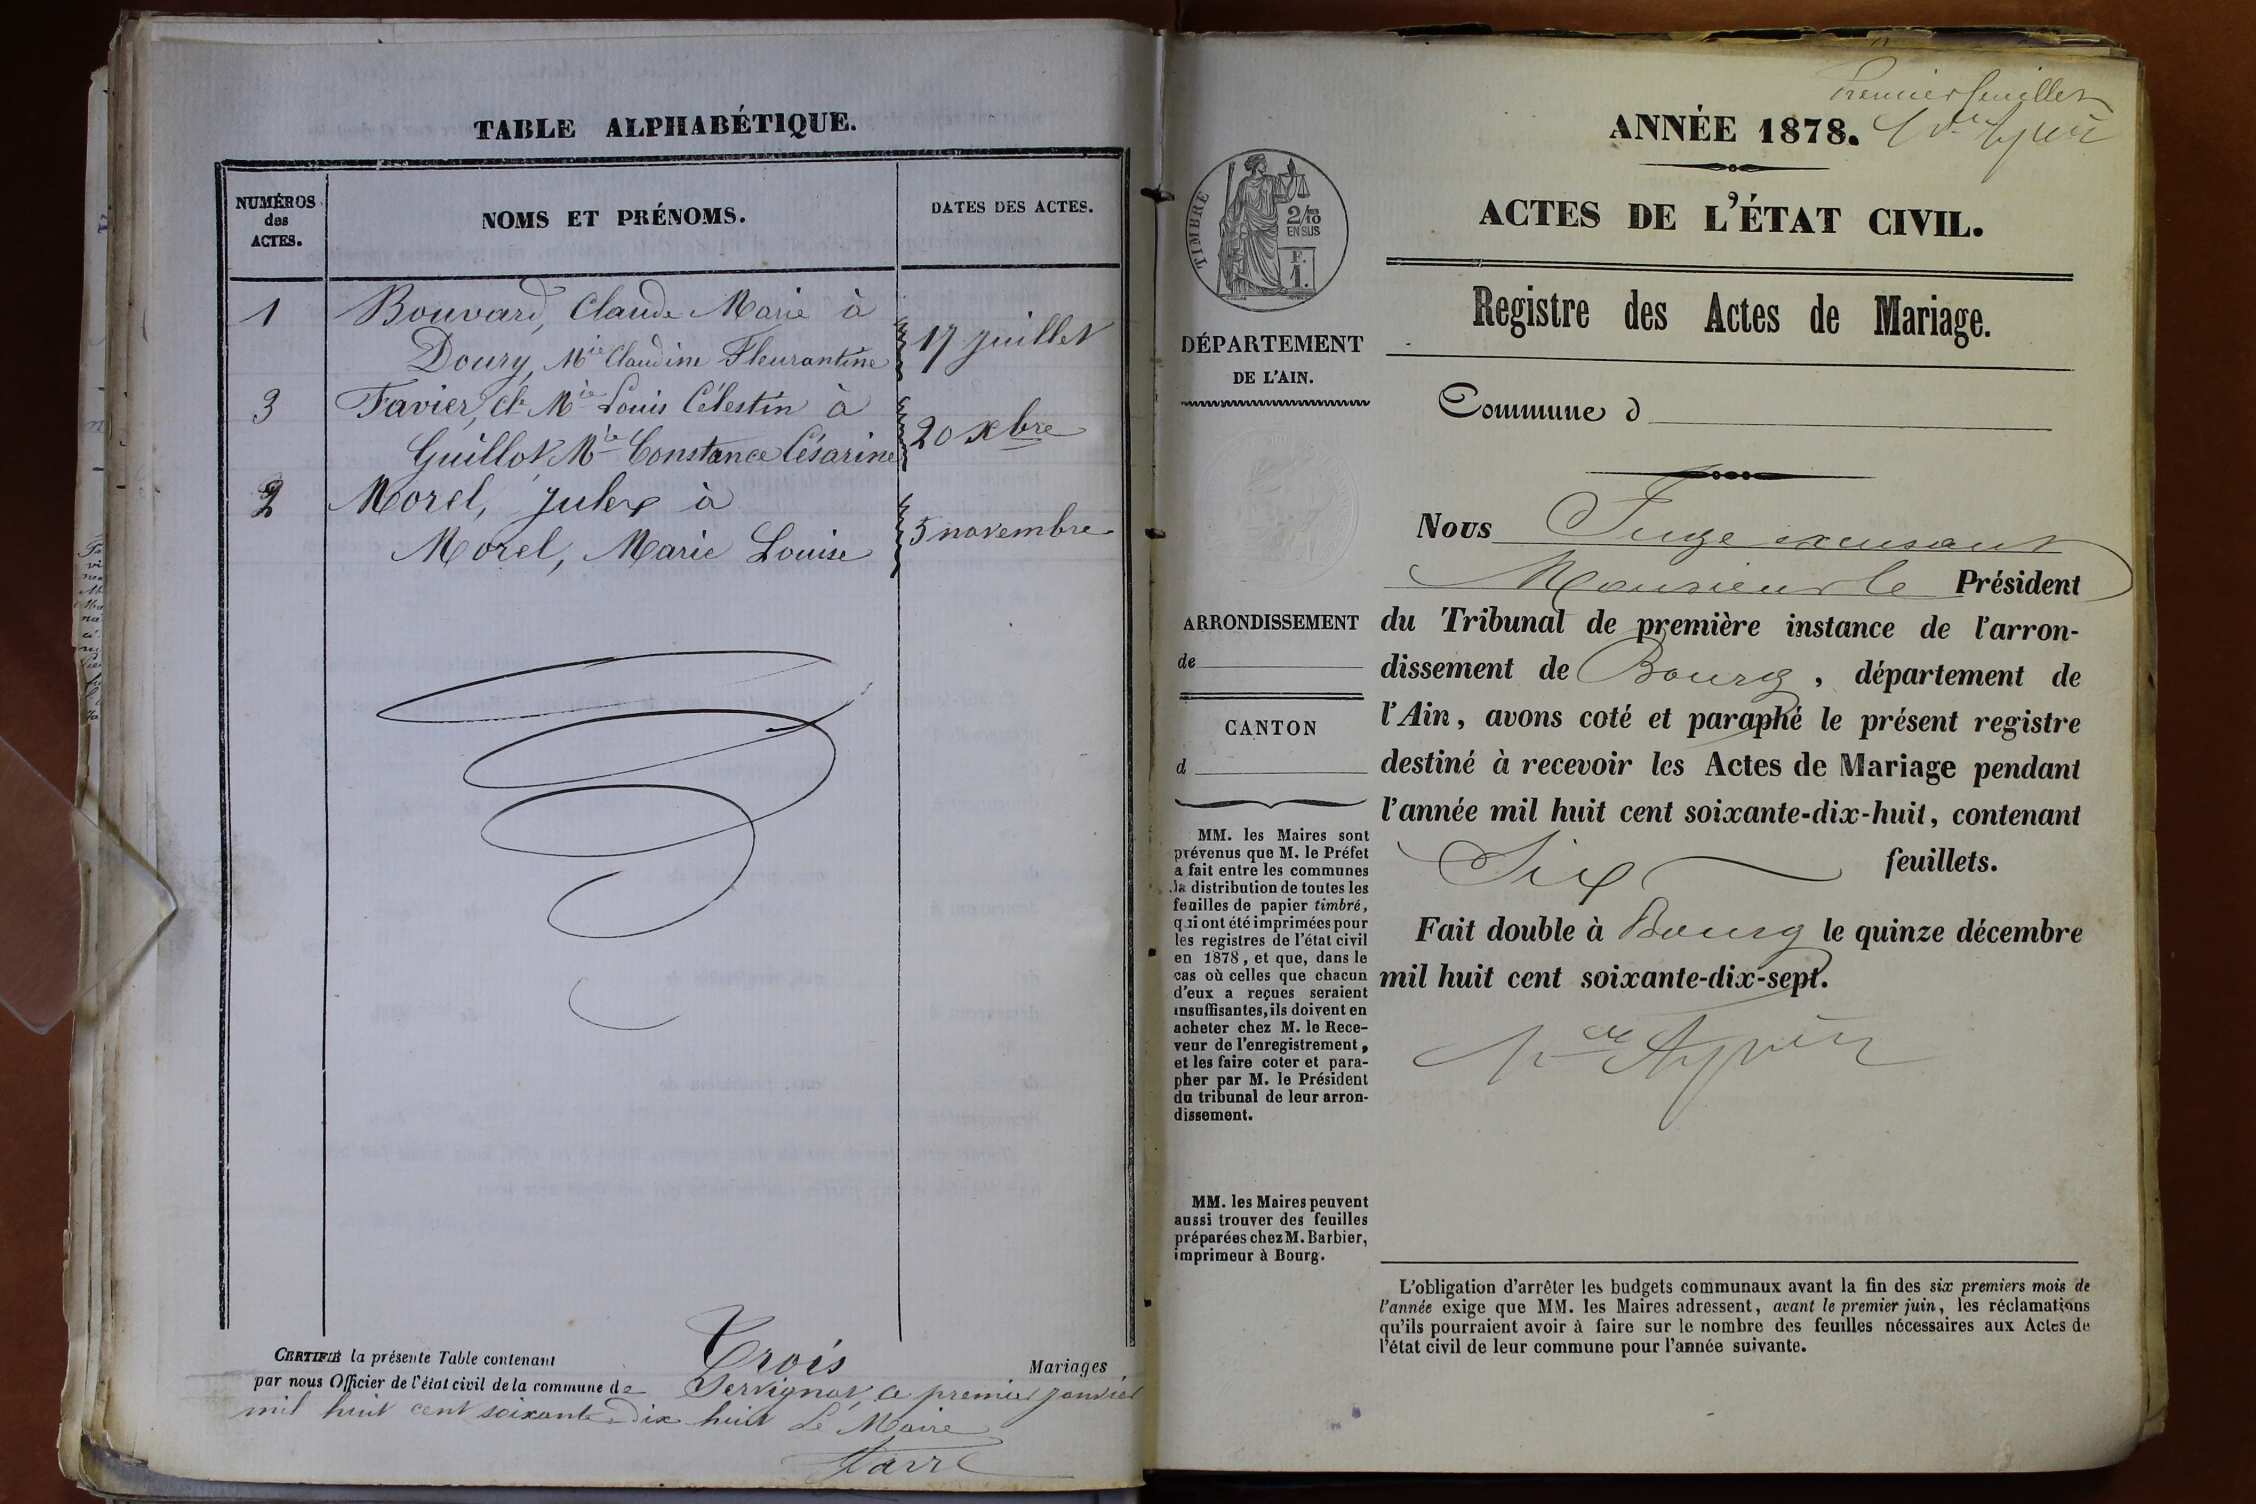 TABLE ALPHABÉTIQUE.
NUMÉROS
des
ACTES.
NOMS ET PRÉNOMS.
DATES DES ACTES.
1 Bouvard, Claude Marie à
Doury, Mie Claudine Fleurantine 17 juillet
3 Favier, Cde Mie Louis Célestin à
Guillot Mie Constance Césarine 20 Xbre
2 Morel, Jules à
Morel, Marie Louise 5 novembre
CERTIFIÉ la présente Table contenant Trois Mariages
par nous Officier de l'état civil de la commune de Servignat, ce premier janvier
mil huit cent soixante dix huit Le Maire
Premier feuillet
ANNÉE 1878.
ACTES DE L'ÉTAT CIVIL.
Registre des Actes de Mariage.
TIMBRE
2/10
EN SUS
F.
1.
DÉPARTEMENT
DE L'AIN.
Commune d
Nous Juge excusant
Monsieur le Président
du Tribunal de première instance de l'arron-
dissement de Bourg, département de
l'Ain, avons coté et paraphé le présent registre
destiné à recevoir les Actes de Mariage pendant
l'année mil huit cent soixante-dix-huit, contenant
Six feuillets.
Fait double à Bourg le quinze décembre
mil huit cent soixante-dix-sept.
ARRONDISSEMENT
de
CANTON
d
MM. les Maires sont
prévenus que M. le Préfet
a fait entre les communes
la distribution de toutes les
feuilles de papier timbré,
qui ont été imprimées pour
les registres de l'état civil
en 1878, et que, dans le
cas où celles que chacun
d'eux a reçues seraient
insuffisantes, ils doivent en
acheter chez M. le Rece-
veur de l'enregistrement,
et les faire coter et para-
pher par M. le Président
du tribunal de leur arron-
dissement.
MM. les Maires peuvent
aussi trouver des feuilles
préparées chez M. Barbier,
imprimeur à Bourg.
L'obligation d'arrêter les budgets communaux avant la fin des six premiers mois de
l'année exige que MM. les Maires adressent, avant le premier juin, les réclamations
qu'ils pourraient avoir à faire sur le nombre des feuilles nécessaires aux Actes de
l'état civil de leur commune pour l'année suivante.